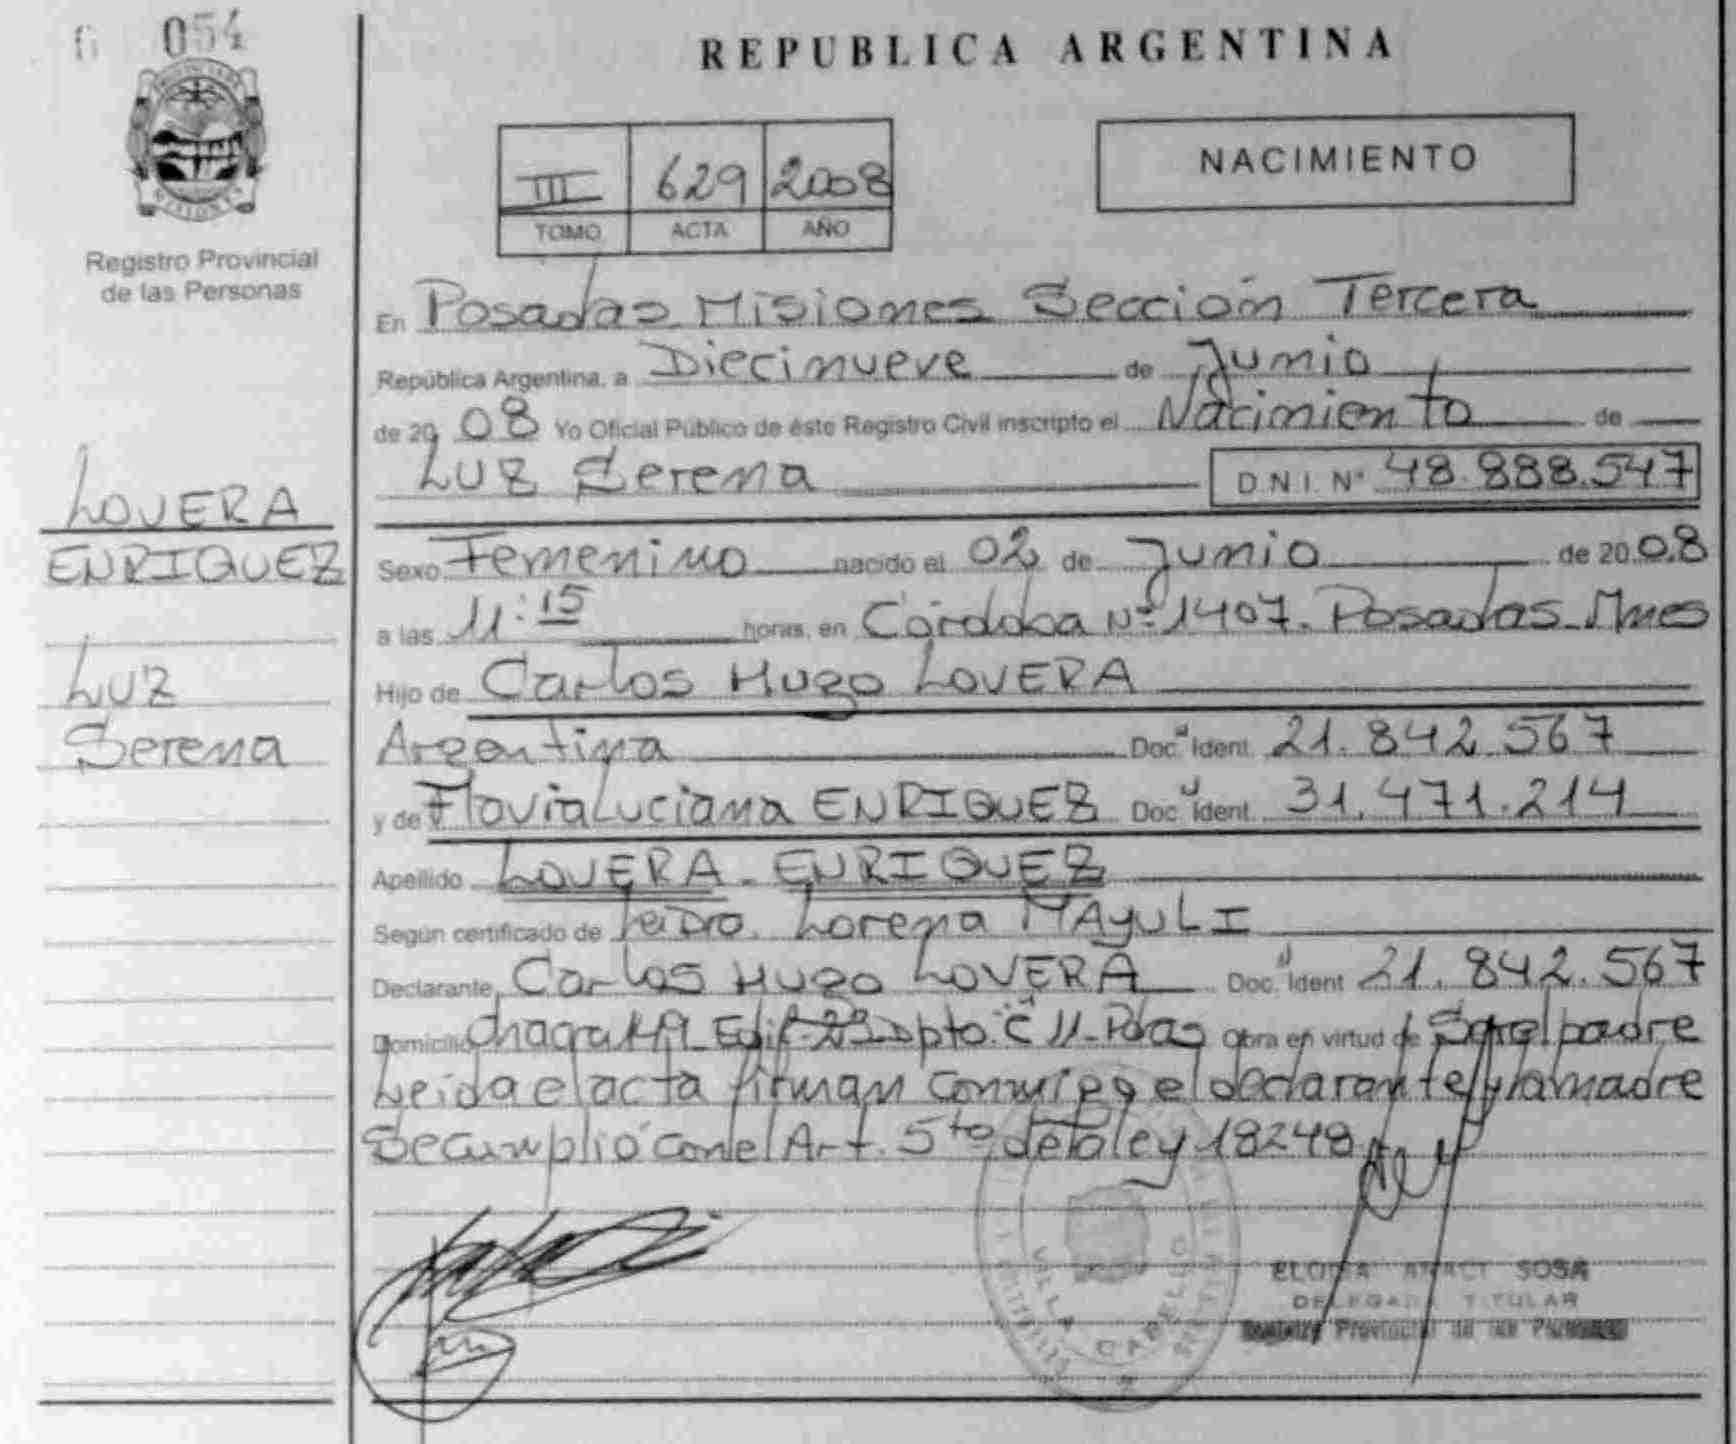 054
REPUBLICA ARGENTINA
III 629 2008
TOMO ACTA AÑO
NACIMIENTO
MISIONES
Registro Provincial
de las Personas
En Posadas Misiones Sección Tercera
República Argentina, a Diecinueve de Junio
de 2008 Yo Oficial Público de éste Registro Civil inscripto el Nacimiento de
Luz Serena D.N.I. Nº 48.888.547
LOVERA
ENRIQUEZ
Luz
Serena
Sexo Femenino nacido el 02 de Junio de 2008
a las 11:15 horas, en Córdoba Nº 1407. Posadas-Mnes
Hijo de Carlos Hugo LOVERA
Argentina Doc. Ident. 21.842.567
y de Flavia Luciana ENRIQUEZ Doc. Ident. 31.471.214
Apellido LOVERA - ENRIQUEZ
Según certificado de Lorena MAYULI
Declarante Carlos Hugo LOVERA Doc. Ident 21.842.567
Domicilio Edif Dpto. C 11-Pdas Obra en virtud de Ser el padre
Leida el acta firman conmigo el declarante y la madre
Se cumplió con el Art. 5to de la ley 18248
VILLA CABELLO
SOSA
DELEGADA TITULAR
Registro Provincial de las Personas